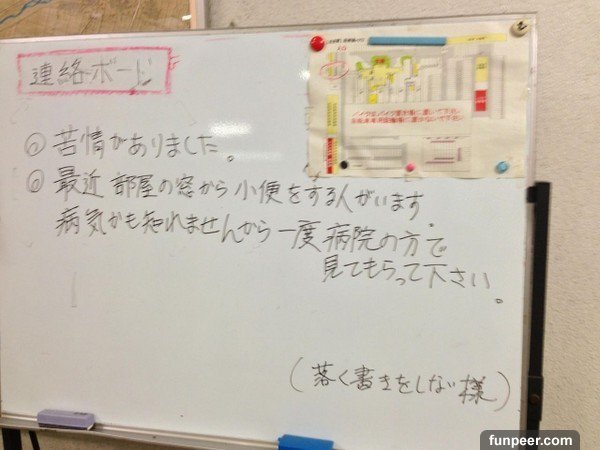 連絡ボード
バイクは、バイク置き場に置いて下さい。
苦情がありました。
最近 部屋の窓から小便をする人がいます
病気かも知れませんから一度病院の方で
見てもらって下さい。
(落く書きをしない様)
funpeer.com